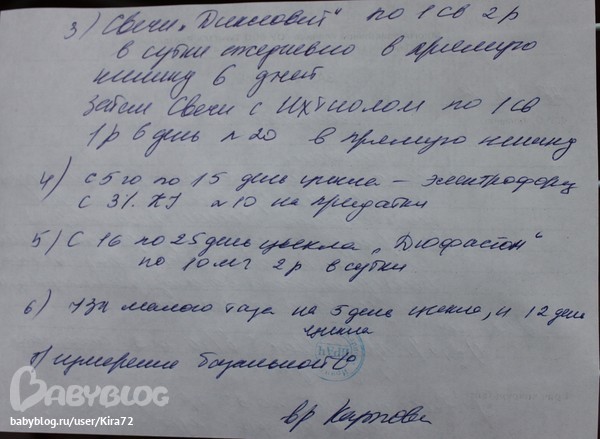 3) Свечи „Дикловит“ по 1 св 2 р
в сутки ежедневно в прямую
кишку 6 дней
Затем Свечи с Ихтиолом по 1 св
1 р в день n 20 в прямую кишку
4) с 5 го по 15 день цикла – электрофорез
с 3% KJ n 10 на придатки
5) С 16 по 25 день цикла „Дюфастон“
по 10 мг 2 р в сутки
6) УЗИ малого таза на 5 день цикла, и 12 день
цикла
7) измерение базальной t°
ВРАЧ
вр
BABYBLOG
babyblog.ru/user/Kira72